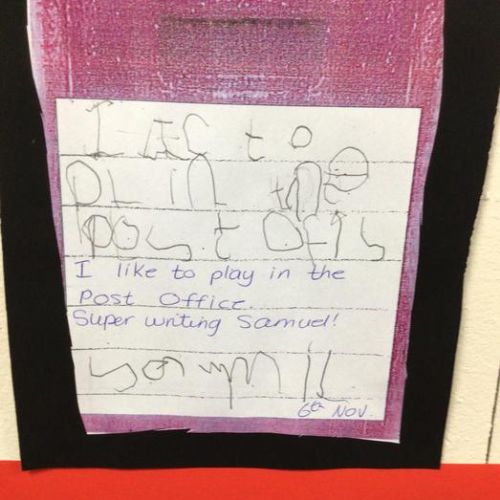 I LIC to
PL in the
post OFis
I like to play in the
Post Office.
Super writing Samuel!
6th Nov.